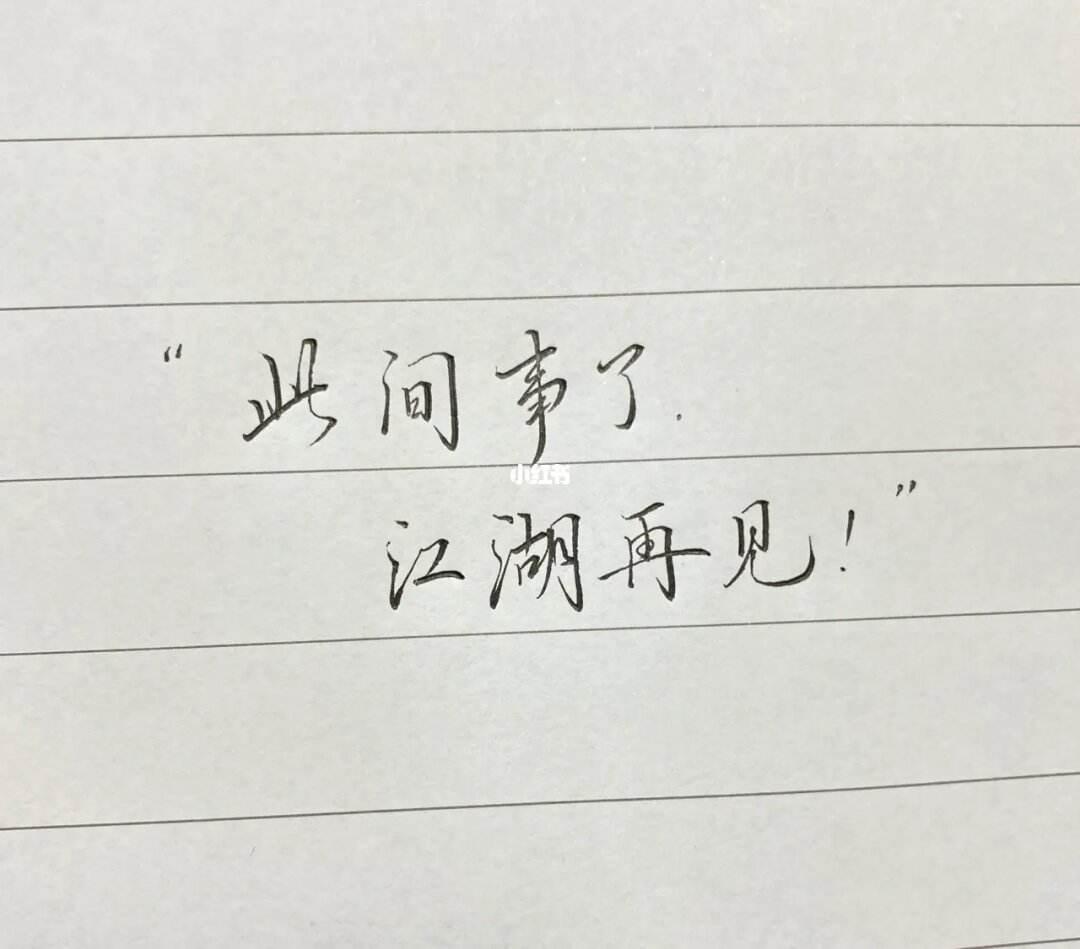 “此间事了.
小红书
江湖再见!”